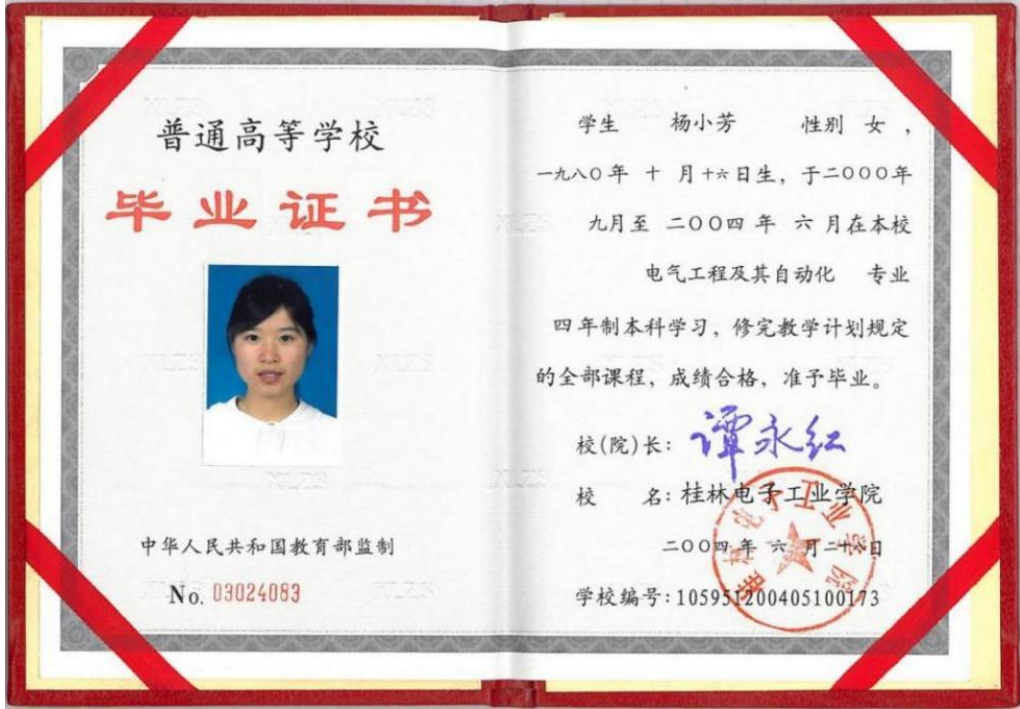 普通高等学校
毕业证书
中华人民共和国教育部监制
No. 03024083
学生 杨小芳 性别 女，
一九八〇年 十 月十六日生，于二〇〇〇年
九月至 二〇〇四 年 六 月在本校
电气工程及其自动化 专业
四年制本科学习，修完教学计划规定
的全部课程，成绩合格，准予毕业。
校(院)长：谭永红
校 名：桂林电子工业学院
二〇〇四 年 六 月二十六日
学校编号：105951200405100173
桂林电子工业学院